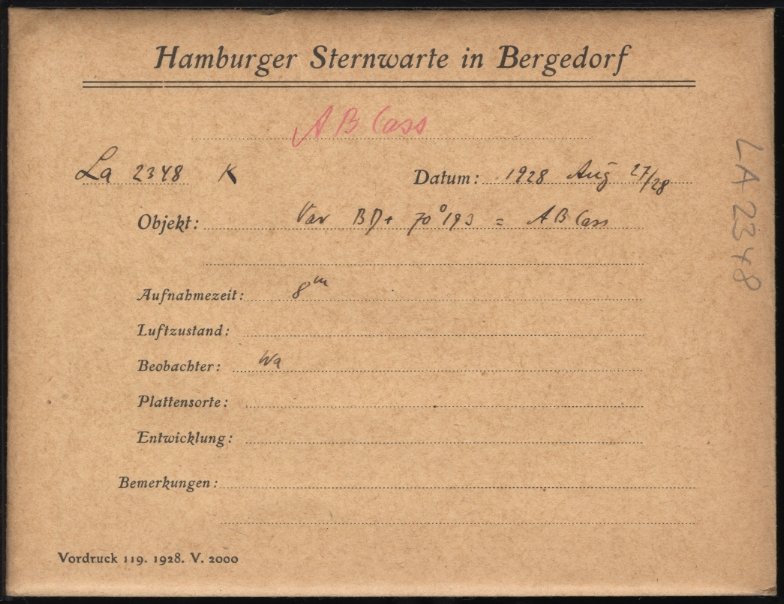 Hamburger Sternwarte in Bergedorf
AB Cass
La 2348 K Datum: 1928 Aug 27/28
Objekt: Var BD+ 70°193 = AB Cass
Aufnahmezeit: 8m
Luftzustand:
Beobachter: Wa
Plattensorte:
Entwicklung:
Bemerkungen:
Vordruck 119. 1928. V. 2000
LA 2348